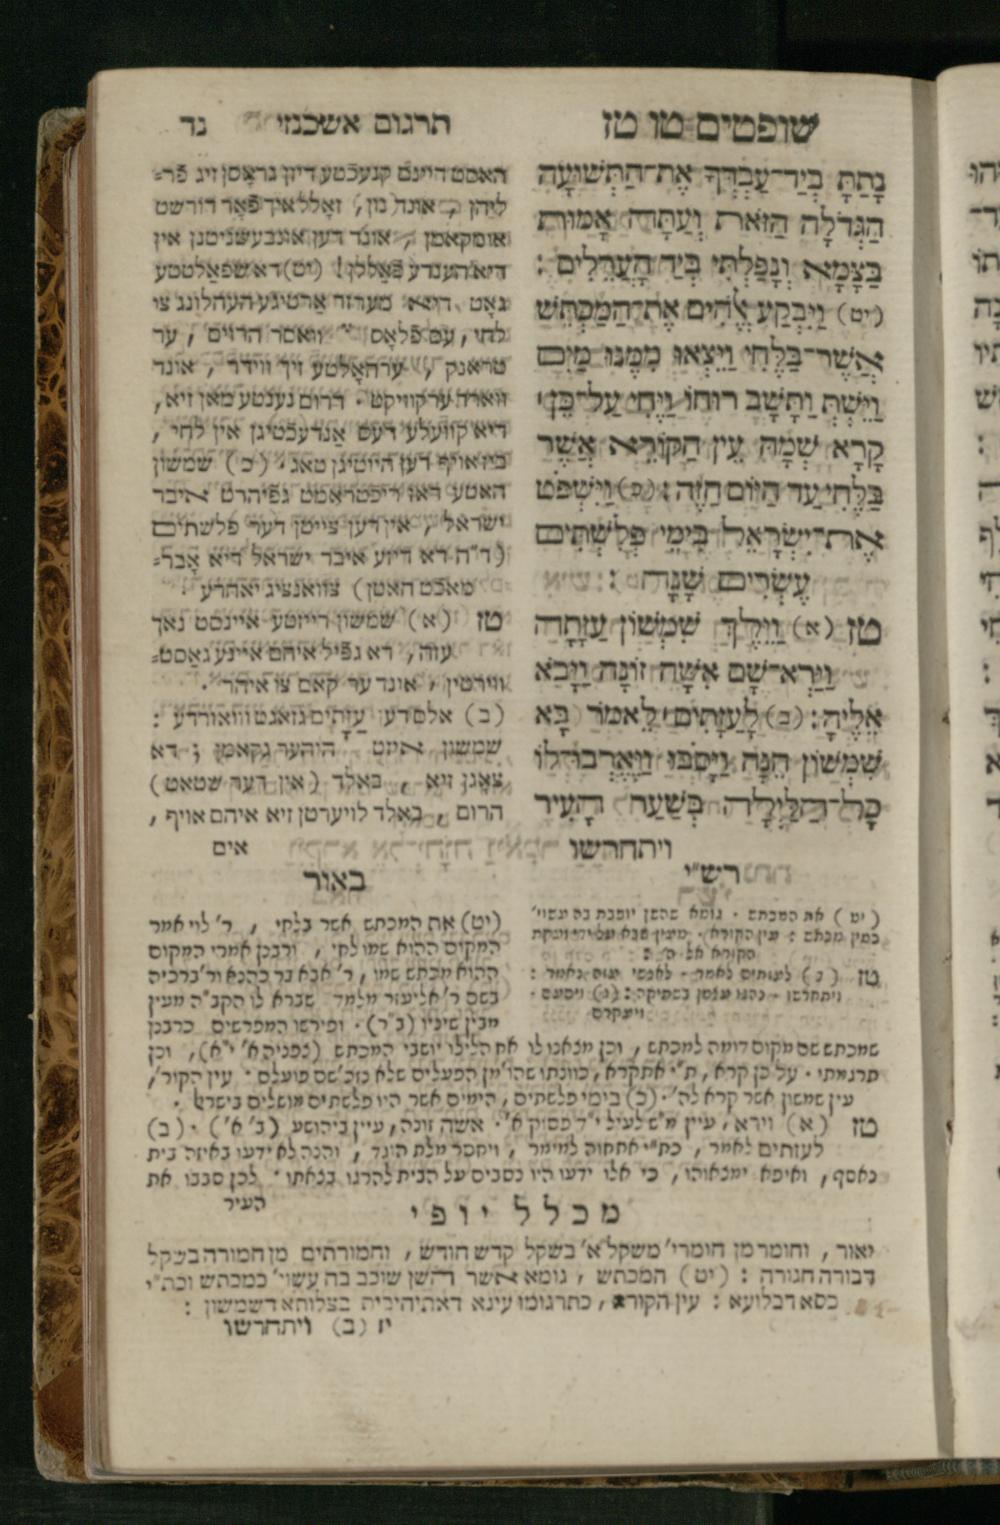 שופטים טו טז
תרגום אשכנזי
נד
נָתַתָּ בְיַד־עַבְדְּךָ אֶת־הַתְּשׁוּעָה
הַגְּדֹלָה הַזֹּאת וְעַתָּה אָמוּת
בַּצָּמָא וְנָפַלְתִּי בְּיַד הָעֲרֵלִים :
(יט) וַיִּבְקַע אֱלֹהִים אֶת־הַמַּכְתֵּשׁ
אֲשֶׁר־בַּלֶּחִי וַיֵּצְאוּ מִמֶּנּוּ מַיִם
וַיֵּשְׁתְּ וַתָּשָׁב רוּחוֹ וַיֶּחִי עַל־כֵּן
קָרָא שְׁמָהּ עֵין הַקּוֹרֵא אֲשֶׁר
בַּלֶּחִי עַד הַיּוֹם הַזֶּה : (כ) וַיִּשְׁפֹּט
אֶת־יִשְׂרָאֵל בִּימֵי פְלִשְׁתִּים
עֶשְׂרִים שָׁנָה :
טז (א) וַיֵּלֶךְ שִׁמְשׁוֹן עַזָּתָה
וַיַּרְא־שָׁם אִשָּׁה זוֹנָה וַיָּבֹא
אֵלֶיהָ : (ב) לָעַזָּתִים לֵאמֹר בָּא
שִׁמְשׁוֹן הֵנָּה וַיָּסֹבּוּ וַיֶּאֶרְבוּ־לוֹ
כָל־הַלַּיְלָה בְּשַׁעַר הָעִיר
ויתחרשו
האסט היינם קנעכטע דיזן גראָסן זיג פֿר=
ליהן , אונד נון, זאָלל איך פֿאָר דורשט
אומקאמן , אונד דען אונבעשניטנן אין
דיא הענדע פֿאַללן ! (יט) דא שפאַלטטע
גאָט דיא מערזר ארטיגע העהלונג צו
לחי , עס פֿלאָס וואסר הרויס , ער
טראנק , ערהאָלטע זיך ווידר , אונד
ווארד ערקוויקט . דרום נענטע מאן זיא,
דיא קוועללע דעס אנדעכטיגן אין לחי ,
ביז אויף דען היוטיגן טאג . (כ) שמשון
האטע דאז ריכטראמט גפיהרט איבר
ישראל , אין דען צייטן דער פלשתים
(ד"ה דא דיזע איבר ישראל דיא אָבר=
מאכט האטן) צוואנציג יאהרע .
טז (א) שמשון רייזטע איינסט נאך
עזה, דא גפיל איהם איינע גאַסט=
ווירטין , אונד ער קאם צו איהר .
(ב) אלס דען עַזָתִים גזאגט וואורדע :
שמשון איזט היהער געקאמן ; דא
צאָגן זיא , באַלד (אין דער שטאט)
הרום , באַלד לויערטן זיא איהם אויף ,
אים
רש"י
(יט) את המכתש . גומא שהשן יושבת בה עשוי'
כמין מכתש : עין הקורא .
הקורא אל ה'
טז (ב) לעזתים לאמר . לאנשי עזה נאמר :
ויתחרשו
ויעקרם
באור
(יט) את המכתש אשר בלחי , ר' לוי אמר
המקום ההוא שמו לחי , ורבנן אמרי המקום
ההוא מכתש שמו , ר' אבא בר כהנא ור' ברכיה
בשם ר' אליעזר מלמד שברא לו הקב"ה מעין
מבין שיניו (ב"ר) . ופירשו המפרשים כרבנן
שמכתש שם מקום דומה למכתש , וכן מצאנו לו את הלילו יושבי המכתש (צפניה א' י"א) , וכן
תרגמתי . על כן קרא , ת"י אתקרא , כוונתו שהו' מן הפעלים שלא נזכ' שם פועלם . עין הקור',
עין שמשון אשר קרא לה' . (כ) בימי פלשתים , הימים אשר היו פלשתים מושלים בישר' .
טז (א) וירא , עיין מ"ש לעיל י"ד פסוק א' . אשה זונה , עיין ביהושע (ב' א') . (ב)
לעזתים לאמר , כת"י אתחוה למימר , ויחסר מלת הוגד , והנה לא ידעו באיזה בית
נאסף , ואיפא ימצאוהו , כי אלו ידעו היו נסבים על הבית להרגו בצאתו . לכן סבבו את
העיר
מכלל יופי
יאור , וחומר מן חומרי' משקל א' בשקל קדש חודש , וחמורתים מן חמורה בשקל
דבורה חגורה : (יט) המכתש , גומא אשר השן שוכב בה עשוי' כמכתש וכת"י
כסא דבלועא : עין הקורא , כתרגומו עינא דאתיהיבית בצלותא דשמשון :
יז (ב) ויתחרשו